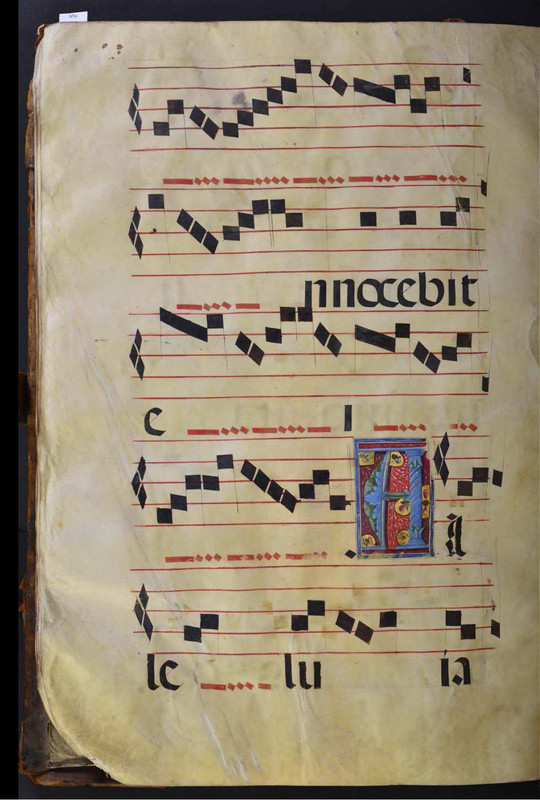 nnocebit
e l
Al
le lu ia